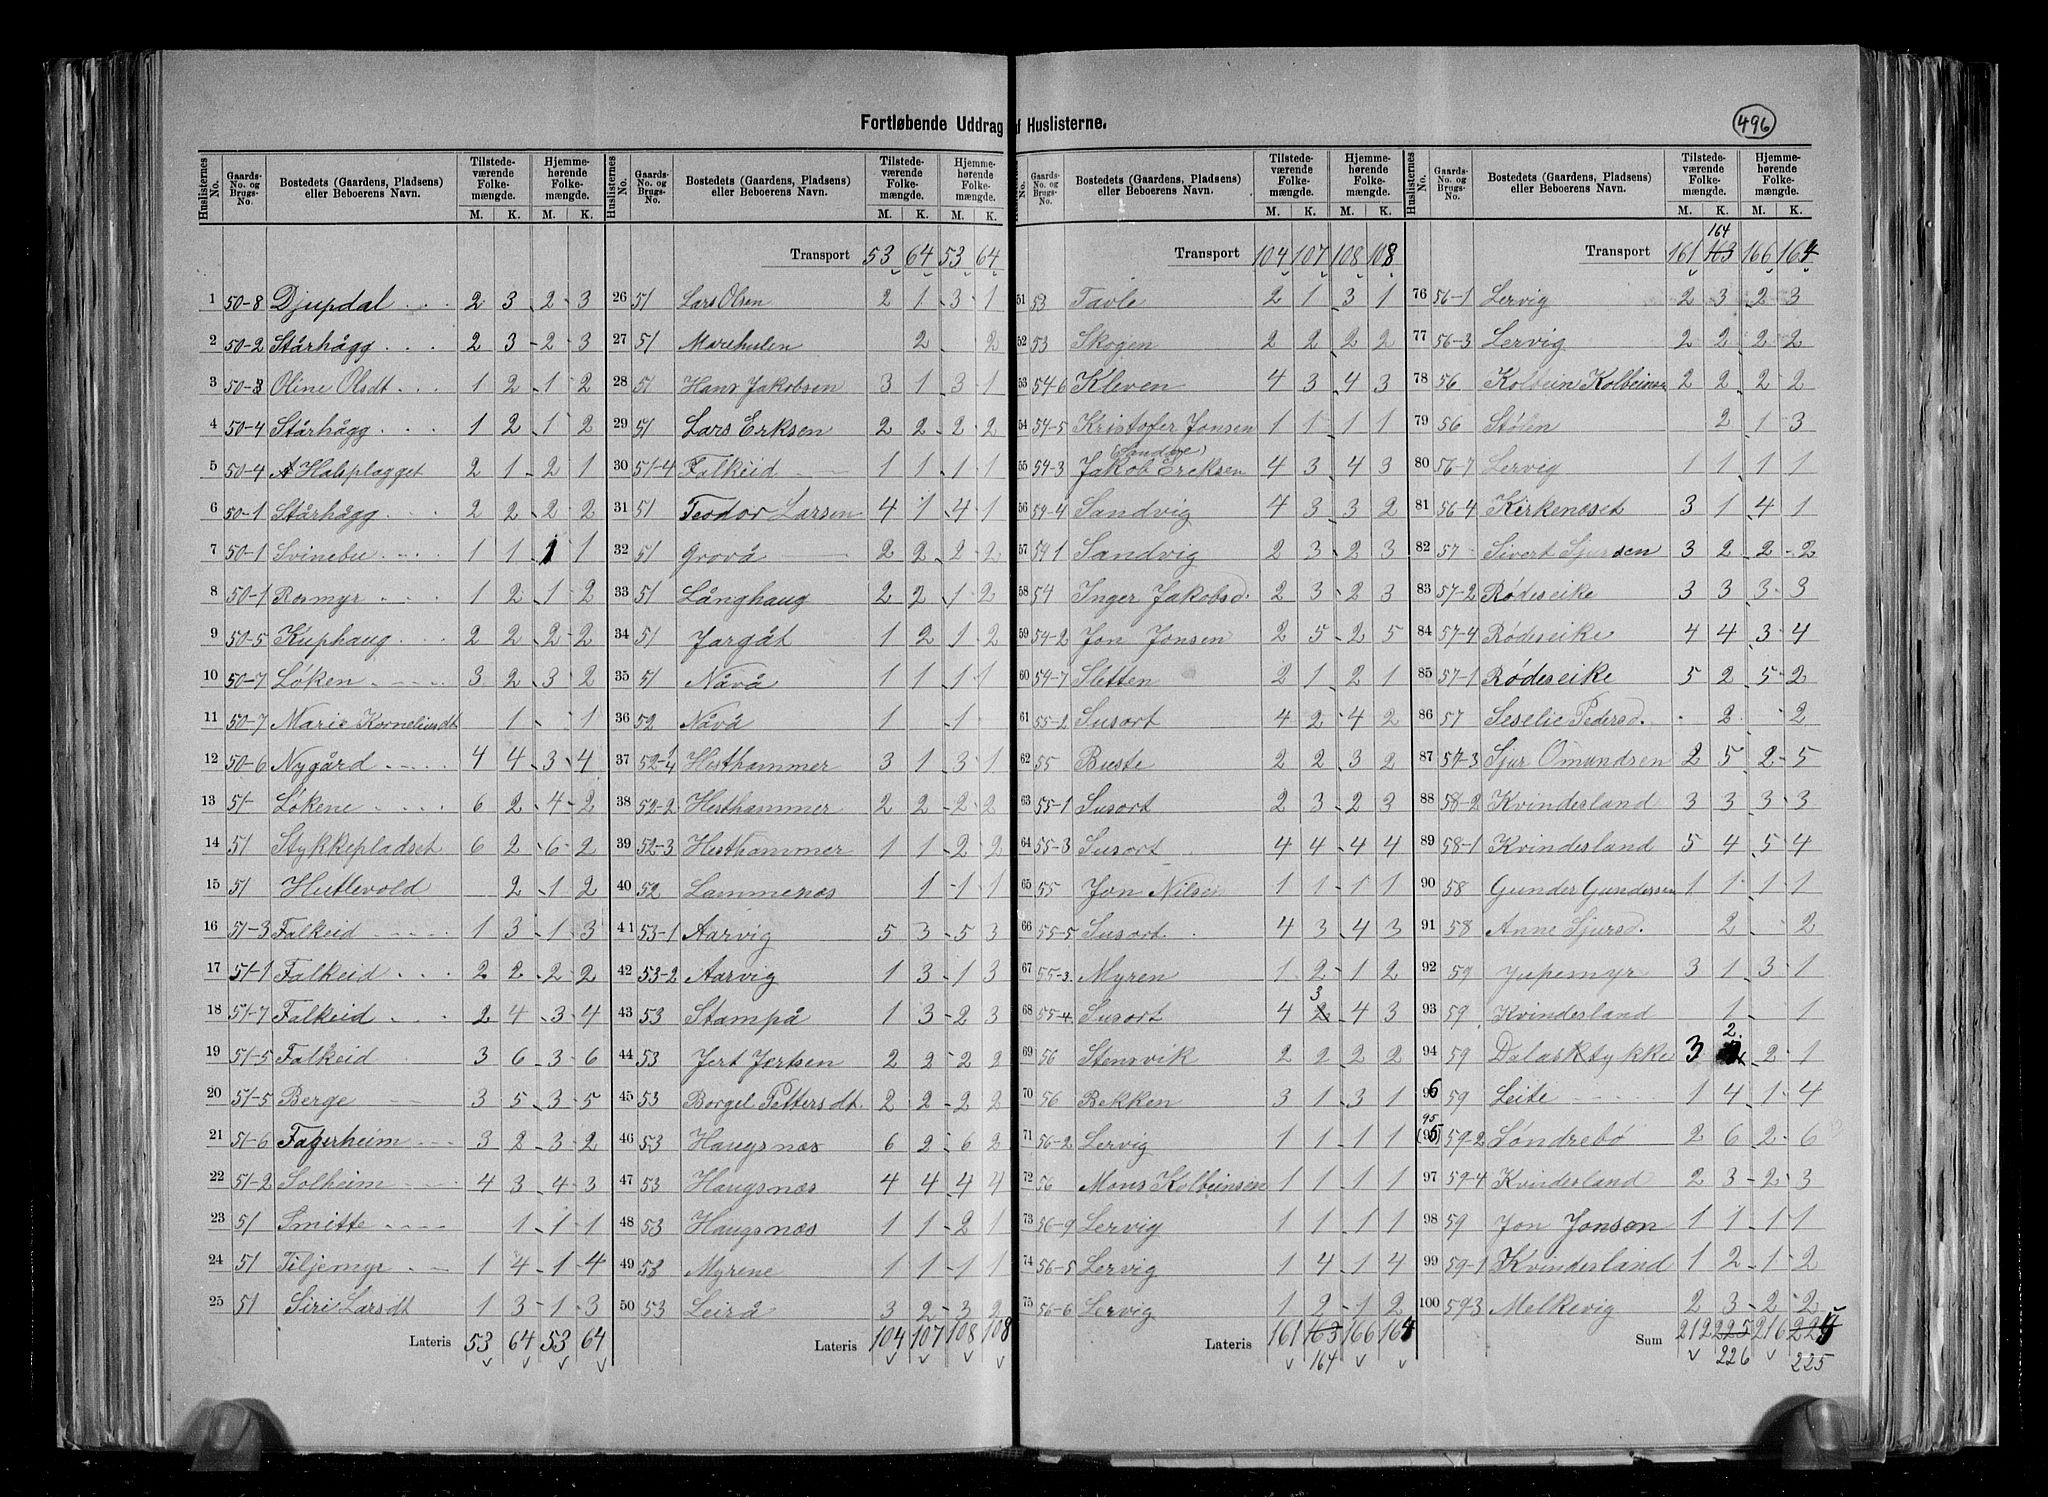 Fortløbende Uddrag af Huslisterne.
496
Huslisternes No. Gaards-No. og Brugs-No. Bostedets (Gaardens, Pladsens) eller Beboerens Navn. Tilstedeværende Folkemængde. M. K. Hjemmehørende Folkemængde. M. K.
1 50-8 Djupdal 2 3 2 3
2 50-2 Stårhågg 2 3 2 3
3 50-3 Oline Olsdt 1 2 1 2
4 50-4 Stårhågg 1 2 1 2
5 50-4 Halsplagget 2 1 2 1
6 50-1 Stårhågg 2 2 2 2
7 50-1 Svinebu 1 1 1 1
8 50-1 Rosmyr 1 2 1 2
9 50-5 Kuphaug 2 2 2 2
10 50-7 Løken 3 2 3 2
11 50-7 Marie Korneliusdt 1 1
12 50-6 Nygård 4 4 3 4
13 51 Løkene 6 2 4 2
14 51 Stykkepladset 6 2 6 2
15 51 Hutlevold 2 1 2
16 51-3 Falkeid 1 3 1 3
17 51-1 Falkeid 2 2 2 2
18 51-7 Falkeid 2 4 3 4
19 51-5 Falkeid 3 6 3 6
20 51-5 Berge 3 5 3 5
21 51-6 Fagerheim 3 2 3 2
22 51-2 Solheim 4 3 4 3
23 51 Smitte 1 1 1
24 51 Tiljemyr 1 4 1 4
25 51 Siri Larsdt 1 3 1 3
Lateris 53 64 53 64
Huslisternes No. Gaards-No. og Brugs-No. Bostedets (Gaardens, Pladsens) eller Beboerens Navn. Tilstedeværende Folkemængde. M. K. Hjemmehørende Folkemængde. M. K.
Transport 53 64 53 64
26 51 Lars Olsen 2 1 3 1
27 51 Marihulen 2 2
28 51 Hans Jakobsen 3 1 3 1
29 51 Lars Erksen 2 2 2 2
30 51-4 Falkeid 1 1 1 1
31 51 Teodor Larsen 4 1 4 1
32 51 Grovå 2 2 2 2
33 51 Långhaug 2 2 1 2
34 51 Jargåt 1 2 1 2
35 51 Nåvå 1 1 1 1
36 52 Nåvå 1 1
37 52-1/4 Hesthammer 3 1 3 1
38 52-2 Hesthammer 2 2 2 2
39 52-3 Hesthammer 1 1 2 2
40 52 Lammenæs 1 1 1
41 53-1 Aarvig 5 3 5 3
42 53-2 Aarvig 1 3 1 3
43 53 Stampå 1 3 2 3
44 53 Jert Jertsen 2 2 2 2
45 53 Borgel Pettersdt. 2 2 2 2
46 53 Haugsnæs 6 2 6 2
47 53 Haugsnæs 4 4 4 4
48 53 Haugsnæs 1 1 2 1
49 53 Myrene 1 1 1 1
50 53 Leirå 3 2 3 2
Lateris 104 107 108 108
Huslisternes No. Gaards-No. og Brugs-No. Bostedets (Gaardens, Pladsens) eller Beboerens Navn. Tilstedeværende Folkemængde. M. K. Hjemmehørende Folkemængde. M. K.
Transport 104 107 108 108
51 53 Tavle 2 1 3 1
52 53 Skogen 2 2 2 2
53 54-6 Kleven 4 3 4 3
54 54-5 Kristofer Jonsen 1 1 1 1
55 54-3 Jakob Ercksen 4 3 4 3
56 54-4 Sandvig 4 3 3 2
57 54-1 Sandvig 2 3 2 3
58 54 Inger Jakobsd. 2 3 2 3
59 54-2 Jon Jonsen 2 5 2 5
60 54-7 Sletten 2 1 2 1
61 55-2 Susort 4 2 4 2
62 55 Buste 2 2 3 2
63 55-1 Susort 2 3 2 3
64 55-3 Susort 4 4 4 4
65 55 Jon Nilsen 1 1 1 1
66 55-5 Susort 4 3 4 3
67 55-3 Myren 1 2 1 2
68 55-4 Susort 4 2 3 4 3
69 56 Stensvik 2 2 2 2
70 56 Bekken 3 1 3 1
71 56-2 Lervig 1 1 1 1
72 56 Mons Kolbeinsen 1 1 1 1
73 56-9 Lervig 1 1 1 1
74 56-5 Lervig 1 4 1 4
75 56-6 Lervig 1 2 1 2
Lateris 161 163 166 164
164
Huslisternes No. Gaards-No. og Brugs-No. Bostedets (Gaardens, Pladsens) eller Beboerens Navn. Tilstedeværende Folkemængde. M. K. Hjemmehørende Folkemængde. M. K.
164
Transport 161 163 166 164
76 56-1 Lervig 2 3 2 3
77 56-3 Lervig 2 2 2 2
78 56 Kolbein Kolbeinsen 2 2 2 2
79 56 Stølen 2 1 3
80 56-7 Lervig 1 1 1 1
81 56-4 Kirkenæset 3 1 4 1
82 57 Sivert Sjursen 3 2 2 2
83 57-2 Rødeseike 3 3 3 3
84 57-4 Rødeseike 4 4 3 4
85 57-1 Rødeseike 5 2 5 2
86 57 Seselie Pedersd. 2 2
87 57-3 Sjur Omundsen 2 5 2 5
88 58-2 Kvindesland 3 3 3 3
89 58-1 Kvindesland 5 4 5 4
90 58 Gunder Gundersen 1 1 1 1
91 58 Anne Sjursd. 2 2
92 59 Jupemyr 3 1 3 1
93 59 Kvindesland 1 1
94 59 Dalastykke 3 2 2 1
96 59 Leite 1 4 1 4
95 (95) 59-2 Søndrebø 2 6 2 6
97 59-4 Kvindesland 2 3 2 3
98 59 Jon Jonsen 1 1 1 1
99 59-1 Kvindesland 1 2 1 2
100 59-3 Melkevig 2 3 2 2
Sum 212 225 216 224
226 225